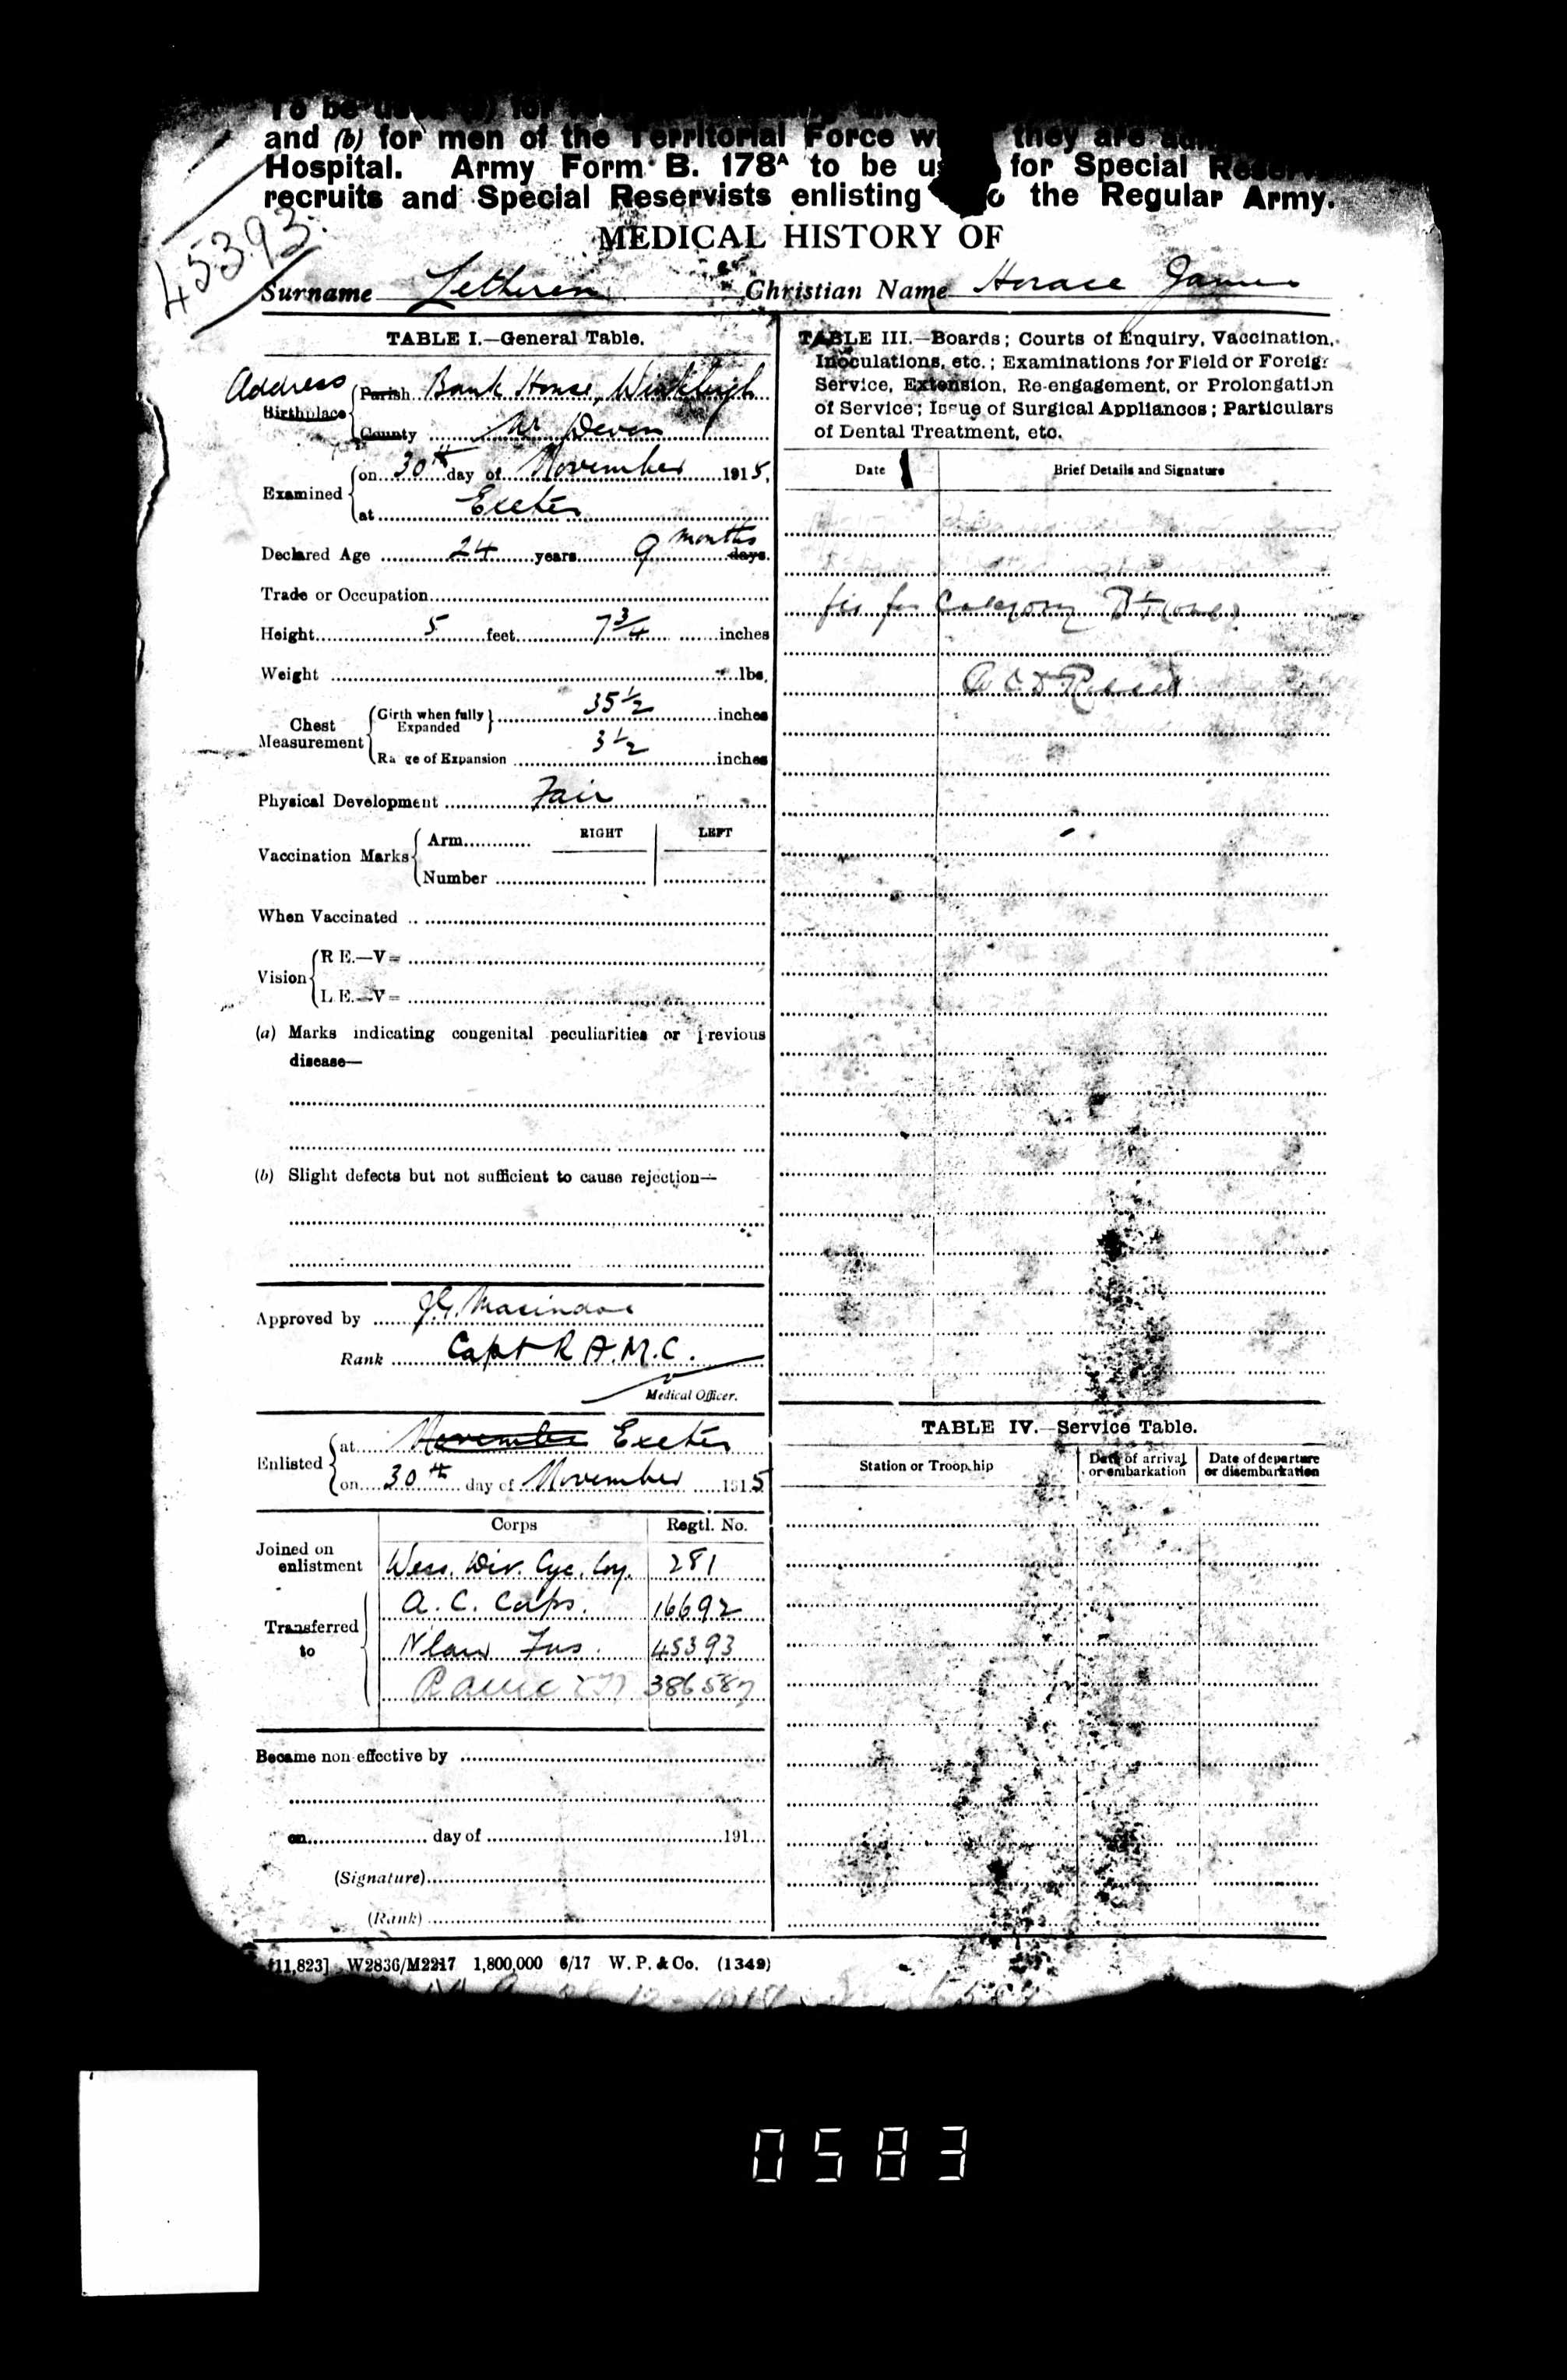 To be used for
and (b) for men of the Territorial Force they are
Hospital. Army Form B. 178A to be for Special
recruits and Special Reservists enlisting the Regular Army.
45393
MEDICAL HISTORY OF
Surname Letheren Christian Name Horace James
TABLE I.—General Table.
Address
Birthplace
Parish Bank House, Winkleigh
County Nr Devon
Examined
on 30th day of November 1915,
at Exeter
Declared Age 24 years 9 months days.
Trade or Occupation
Height 5 feet 7 3/4 inches
Weight lbs.
Chest Measurement
Girth when fully Expanded 35 1/2 inches
Range of Expansion 3 1/2 inches
Physical Development Fair
Vaccination Marks
Arm RIGHT LEFT
Number
When Vaccinated
Vision
R E.—V=
L E.—V=
(a) Marks indicating congenital peculiarities or previous
disease—
(b) Slight defects but not sufficient to cause rejection—
Approved by
Rank Capt R.A.M.C.
Medical Officer.
Enlisted
at November Exeter
on 30th day of November 1915
Corps Regtl. No.
Joined on
enlistment
Wess. Div. Cyc. Coy. 281
Transferred
to
A. C. Corps. 16692
N Lan Fus. 45393
386587
Became non-effective by
on day of 191
(Signature)
(Rank)
[11,823] W2836/M2217 1,800,000 6/17 W. P. & Co. (1349)
TABLE III.—Boards; Courts of Enquiry, Vaccination,
Inoculations, etc.; Examinations for Field or Foreign
Service, Extension, Re-engagement, or Prolongation
of Service; Issue of Surgical Appliances; Particulars
of Dental Treatment, etc.
Date Brief Details and Signature
fit for Category
TABLE IV.—Service Table.
Station or Troopship
Date of arrival
or embarkation
Date of departure
or disembarkation
0583